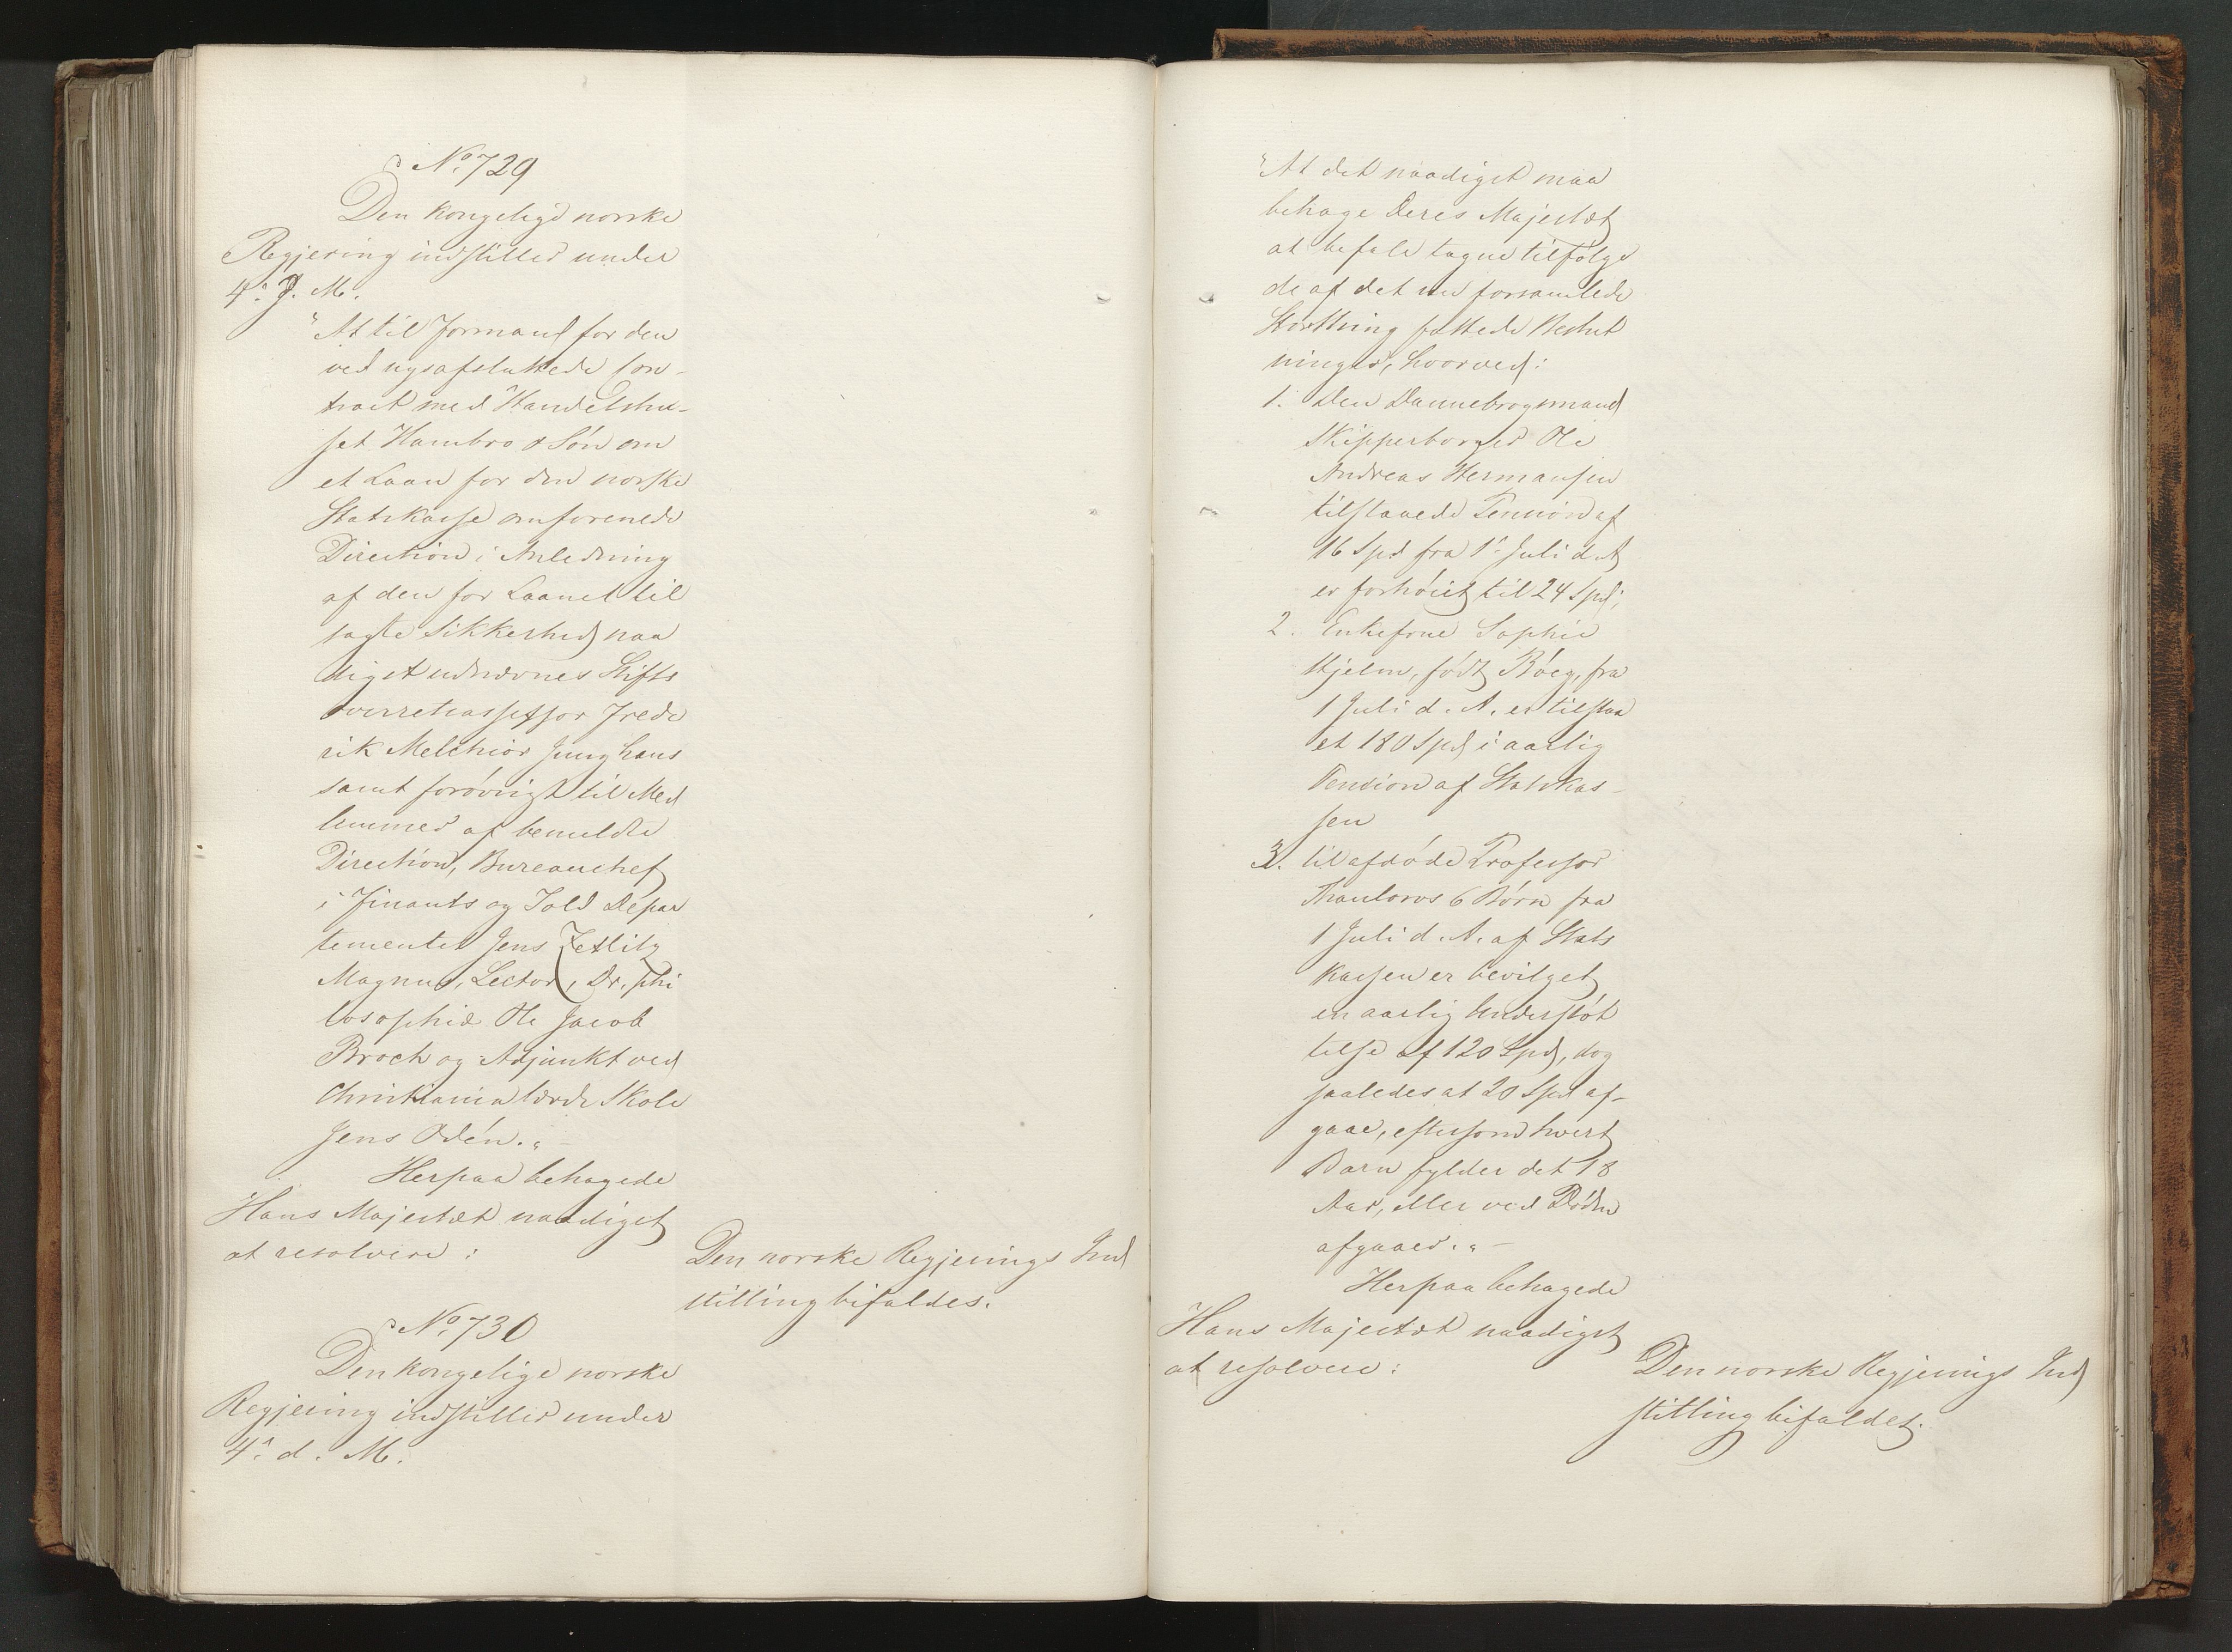 No. 729
Den kongelige norske
Regjering indstiller under
4de d. M.
"At til Formand for den
ved nysafsluttede Con-
tract med Handelshu-
set Hambro & Sön om
et Laan for den norske
Statskasse omforenede
Direction i Anledning
af den for Laanet til
sagte Sikkerhed naa
digst udnævnes Stifts
overretsassessor Frede
rik Melchior Junghans
samt forövrigt til Med
lemmer af bemeldte
Direction, Bureauchef
i Finants og Told Depar
tementet Jens Zetlitz
Magnus, Lector, Dr. phi
losophiæ Ole Jacob
Broch og Adjunkt ved
Christiania lærde Skole
Jens Odén."
Herpaa behagede
Hans Majestæt naadigst
at resolvere:
Den norske Regjerings Ind
stilling bifaldes.
No. 730
Den kongelige norske
Regjering indstiller under
4de d. M.
"At det naadigst maa
behage Deres Majestæt
at befale tagne tilfölge
de af det nu forsamlede
Storthing fattede Beslut
ninger, hvorved:
1. Den Dannebrogsmand
Skipperborger Ole
Andreas Hermansen
tilstaaede Pension af
16 Spd fra 1ste Juli d. A.
er forhöiet til 24 Spd;
2. Enkefrue Sophie
Hjelm, födt Böeg, fra
1 Juli d. A. er tilstaa
et 180 Spd i aarlig
Pension af Statskas-
sen
3. til afdöde Professor
Thaulows 6 Börn fra
1 Juli d. A. af Stats
kassen er bevilget
en aarlig Understöt
telse af 120 Spd, dog
saaledes at 20 Spd af-
gaae, eftersom hvert
Barn fylder det 18
Aar, eller ved Döden
afgaaer."
Herpaa behagede
Hans Majestæt naadigst
at resolvere:
Den norske Regjerings Ind
stilling bifaldes.